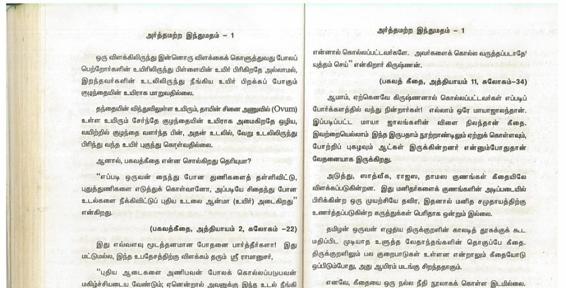 அர்த்தமற்ற இந்துமதம் – 1
ஒரு விளக்கிலிருந்து இன்னொரு விளக்கைக் கொளுத்துவது போலப்
பெற்றோர்களின் உயிரிலிருந்து பிள்ளையின் உயிர் பிரிகிறதே அல்லாமல்,
இறந்தவர்களின் உடலிலிருந்து நீங்கிய உயிர் பிறக்கப் போகும்
குழந்தையின் உயிராக மாறுவதில்லை.
தந்தையின் விந்துவிலுள்ள உயிரும், தாயின் சினை அணுவில் (Ovum)
உள்ள உயிரும் சேர்ந்தே குழந்தையின் உயிராக அமைகிறதே ஒழிய,
வயிற்றில் குழந்தை வளர்ந்த பின், அதன் உடலில், வேறு உடலிலிருந்து
பிரிந்து வந்த உயிர் புகுந்து கொள்வதில்லை.
ஆனால், பகவத்கீதை என்ன சொல்கிறது தெரியுமா?
"எப்படி ஒருவன் நைந்து போன துணிகளைத் தள்ளிவிட்டு,
புதுத்துணிகளை எடுத்துக் கொள்வானோ, அப்படியே சிதைந்து போன
உடல்களை நீக்கிவிட்டுப் புதிய உடலை ஆன்மா (உயிர்) அடைகிறது"
என்கிறது.
(பகவத்கீதை, அத்தியாயம் 2, சுலோகம் –22)
இது எவ்வளவு மூடத்தனமான போதனை பார்த்தீர்களா! இது
மட்டுமல்ல, இந்த உபதேசத்திற்கு விளக்கம் தரும் ஸ்ரீ ராமானுசர்,
"புதிய ஆடைகளை அணிபவன் போலக் கொல்லப்படுபவன்
மகிழ்ச்சியடைய வேண்டும்; ஏனென்றால் அவனுக்கு இந்த உடல் நீங்கி
அர்த்தமற்ற இந்துமதம் – 1
என்னால் கொல்லப்பட்டவர்களே. அவர்களைக் கொல்ல வருத்தப்படாதே!
யுத்தம் செய்" என்கிறார் கிருஷ்ணன்.
(பகவத் கீதை, அத்தியாயம் 11, சுலோகம்–34)
ஆமாம், ஏற்கெனவே கிருஷ்ணனால் கொல்லப்பட்டவர்கள் எப்படிப்
போர்க்களத்தில் வந்து நின்றார்கள்! எல்லாம் ஒரே மாயாஜாலந்தான்.
இப்படிப்பட்ட மாயா ஜாலங்களின் விளை நிலந்தான் கீதை.
இவற்றையெல்லாம் இந்த இருபதாம் நூற்றாண்டிலும் ஏற்றுக் கொள்ளவும்,
போற்றிப் புகழவும் ஆட்கள் இருக்கின்றனர் என்னும்போதுதான்
வேதனையாக இருக்கிறது.
அடுத்து, ஸாத்வீக, ராஜஸ, தாமஸ குணங்கள் கீதையிலே
விளக்கப்படுகின்றன. இது மனிதர்களைக் குணங்களின் அடிப்படையில்
பிரிக்கின்ற ஒரு முயற்சியே தவிர, இதனால் மனித சமுதாயத்திற்கு
உணர்த்தப்படுகின்ற கருத்துக்கள் பெரிதாக ஒன்றும் இல்லை.
தமிழன் ஒருவன் எழுதிய திருக்குறளின் காலடித் தூசுக்குக் கூட
மதிப்பிட முடியாத உளுத்த வேதாந்தங்களின் தொகுப்பே கீதை.
திருக்குறளிலும் பல குறைபாடுகள் உள்ளன என்றாலும் கீதையோடு
ஒப்பிடும்போது, அது ஆயிரம் மடங்கு சிறந்ததாகும்.
எனவே, கீதையை ஒரு நல்ல நீதி நூலாகக் கொள்ள இடமில்லை.